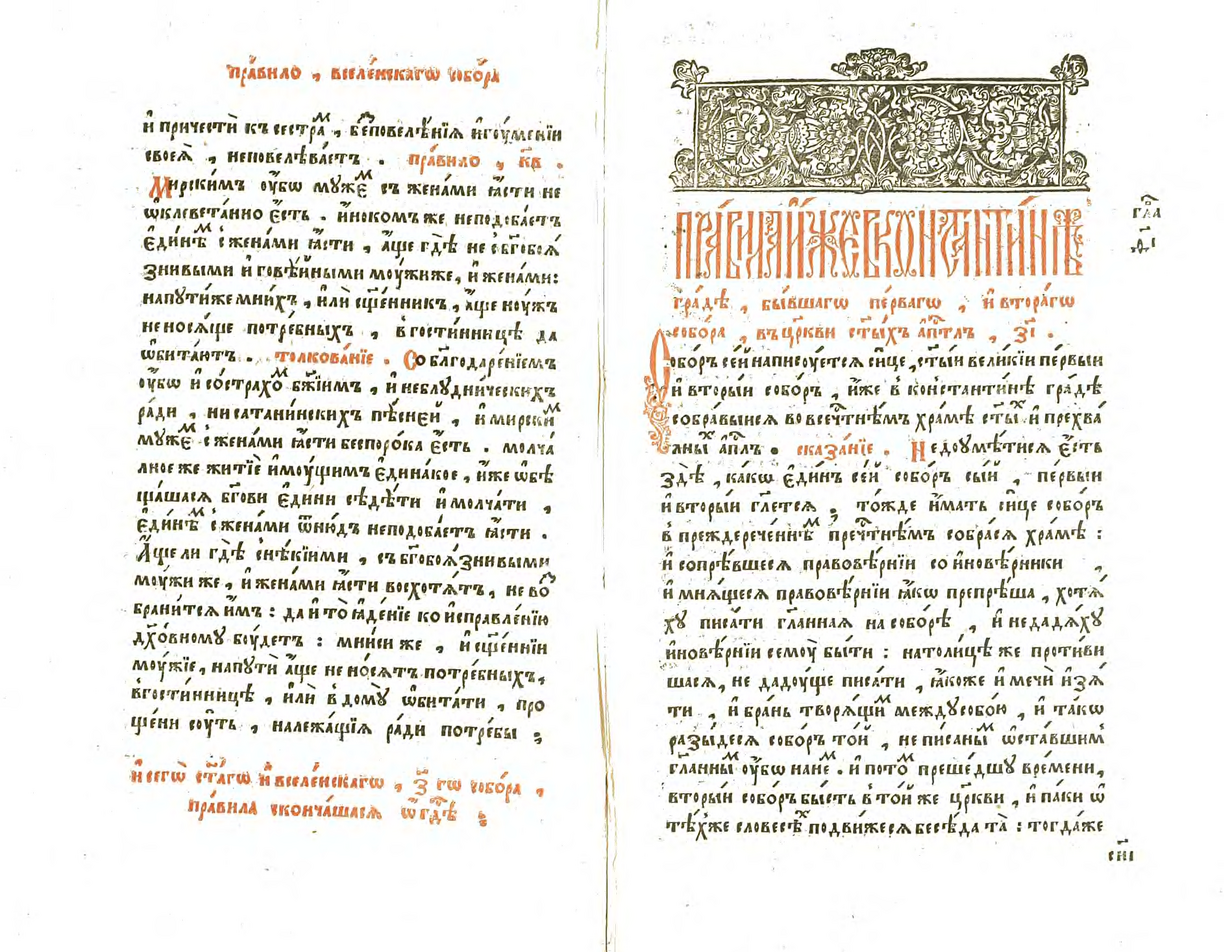 пра́вило , вселе́нскагѡ собо́ра
и҆ причестѝ къ сестра́ᷟ , беⷥ повелѣ́нїѧ и҆гоуменїи
своеѧ̀ , неповелѣва́етъ . пра́вило , к҃в .
Мирскимъ оу҆́бѡ муже́ᷟ съ жена́ми ꙗ҆́сти не
ѡ҆клеветанно є҆́сть . и҆́нокомъ же неподоба́етъ
є҆ди́нѣᷟ с жена́ми ꙗ҆́сти , а҆́ще гдѣ̀ не с бг҃обоѧ́
знивыми и҆ говѣ́йными моу́жи же , и҆ жена́ми :
на пути́ же мни́хъ , и҆лѝ сщ҃е́нникъ , а҆́ще ноу́жъ
не носѧ́ще потре́бныхъ , в гости́нницѣ да
ѡ҆бита́ютъ . толкова́нїе . Со благодаре́нїемъ
оу҆́бѡ и҆ со́страхоᷟ бж҃їимъ , и҆ неблудни́ческихъ
ра́ди , ни сатани́нскихъ пѣ́сней , и҆ мирскиᷟ
муже́ᷟ с жена́ми ꙗ҆́сти беспоро́ка є҆́сть . молча́
лное же житїѐ и҆моу́щимъ є҆дина́кое , и҆́же ѡ҆бѣ
ща́шасѧ бг҃ови є҆ди́ни сѣдѣ́ти и҆ молча́ти ,
є҆ди́нѣᷟ с жена́ми ѿню́дъ неподоба́етъ ꙗ҆́сти .
А҆́ще ли гдѣ̀ с нѣ́кїими , съ бг҃обоѧ́знивыми
моу́жи же , и҆ жена́ми ꙗ҆́сти восхотѧ́тъ , не воⷥ
бранитсѧ и҆̀мъ : да и҆ то̀ ꙗ҆де́нїе ко и҆справле́нїю
дх҃о́вному боу́детъ : мни́си же , и҆ сщ҃е́ннїи
моу́жїе , на путѝ а҆́ще не но́сѧтъ потре́бныхъ ,
в гости́нницѣ , и҆лѝ в дому̀ ѡ҆бита́ти , про
ще́ни соу́ть , належа́щїѧ ра́ди потре́бы ;
и҆ сегѡ̀ ст҃а́гѡ и҆ вселе́нскагѡ , з҃ гѡ собо́ра ,
пра́вила сконча́шасѧ ѿгдѣ̀ ;
ПРА́ВИЛА И҆́ЖЕ В КОНСТАНТИ́НѢ
гра́дѣ , бы́вшагѡ пе́рвагѡ , и҆ втора́гѡ
собо́ра , въ цр҃кви ст҃ы́хъ а҆пⷭ҇тлъ , з҃і .
Собо́ръ се́й написоу́етсѧ си́це , ст҃ы́и вели́кїи пе́рвыи
и҆ вторы́и собо́ръ , и҆́же в константи́нѣ гра́дѣ
собра́выисѧ во всечⷭ҇тнѣмъ хра́мѣ ст҃ы́ⷯ и҆ прехва́
лныⷯ а҆пⷭ҇лъ . сказа́нїе . Недоумѣ́тисѧ є҆́сть
здѣ̀ , ка́кѡ є҆ди́нъ се́й собо́ръ сы́й , пе́рвыи
и҆ вторы́и гл҃етсѧ . то́жде и҆́мать си́це собо́ръ
в преждерече́ннѣᷟ пречтⷭ҇нѣмъ собра́сѧ хра́мѣ :
и҆ сопрѣ́вшесѧ правовѣ́рнїи со и҆новѣ́рники ,
и҆ мнѧ́щесѧ правовѣ́рнїи ꙗ҆́кѡ препрѣ́ша , хотѧ́
ху писа́ти гл҃анная на собо́рѣ , и҆ не дадѧ́ху
и҆новѣ́рнїи семоу̀ бы́ти : на толи́цѣ же проти́ви
шасѧ , не дадоу́ще писа́ти , ꙗ҆́коже и҆ мечи̑ и҆зѧ́
ти , и҆ бра́нь творѧ́щиᷟ междусобо́ю , и҆ та́кѡ
разы́десѧ собо́ръ то́й , не пи́саныᷟ ѡ҆ста́вшим
гл҃анныᷟ оу҆́бѡ на не́ᷟ . и҆ пото́ᷟ преше́дшу вре́мени ,
вторы́и собо́ръ бы́сть в то́й же цр҃кви , и҆ па́ки ѡ҆
тѣ́хже словесѣ́ⷯ подви́жесѧ бесѣ́да та̀ : тогда́ же
гла҃
с҃ні